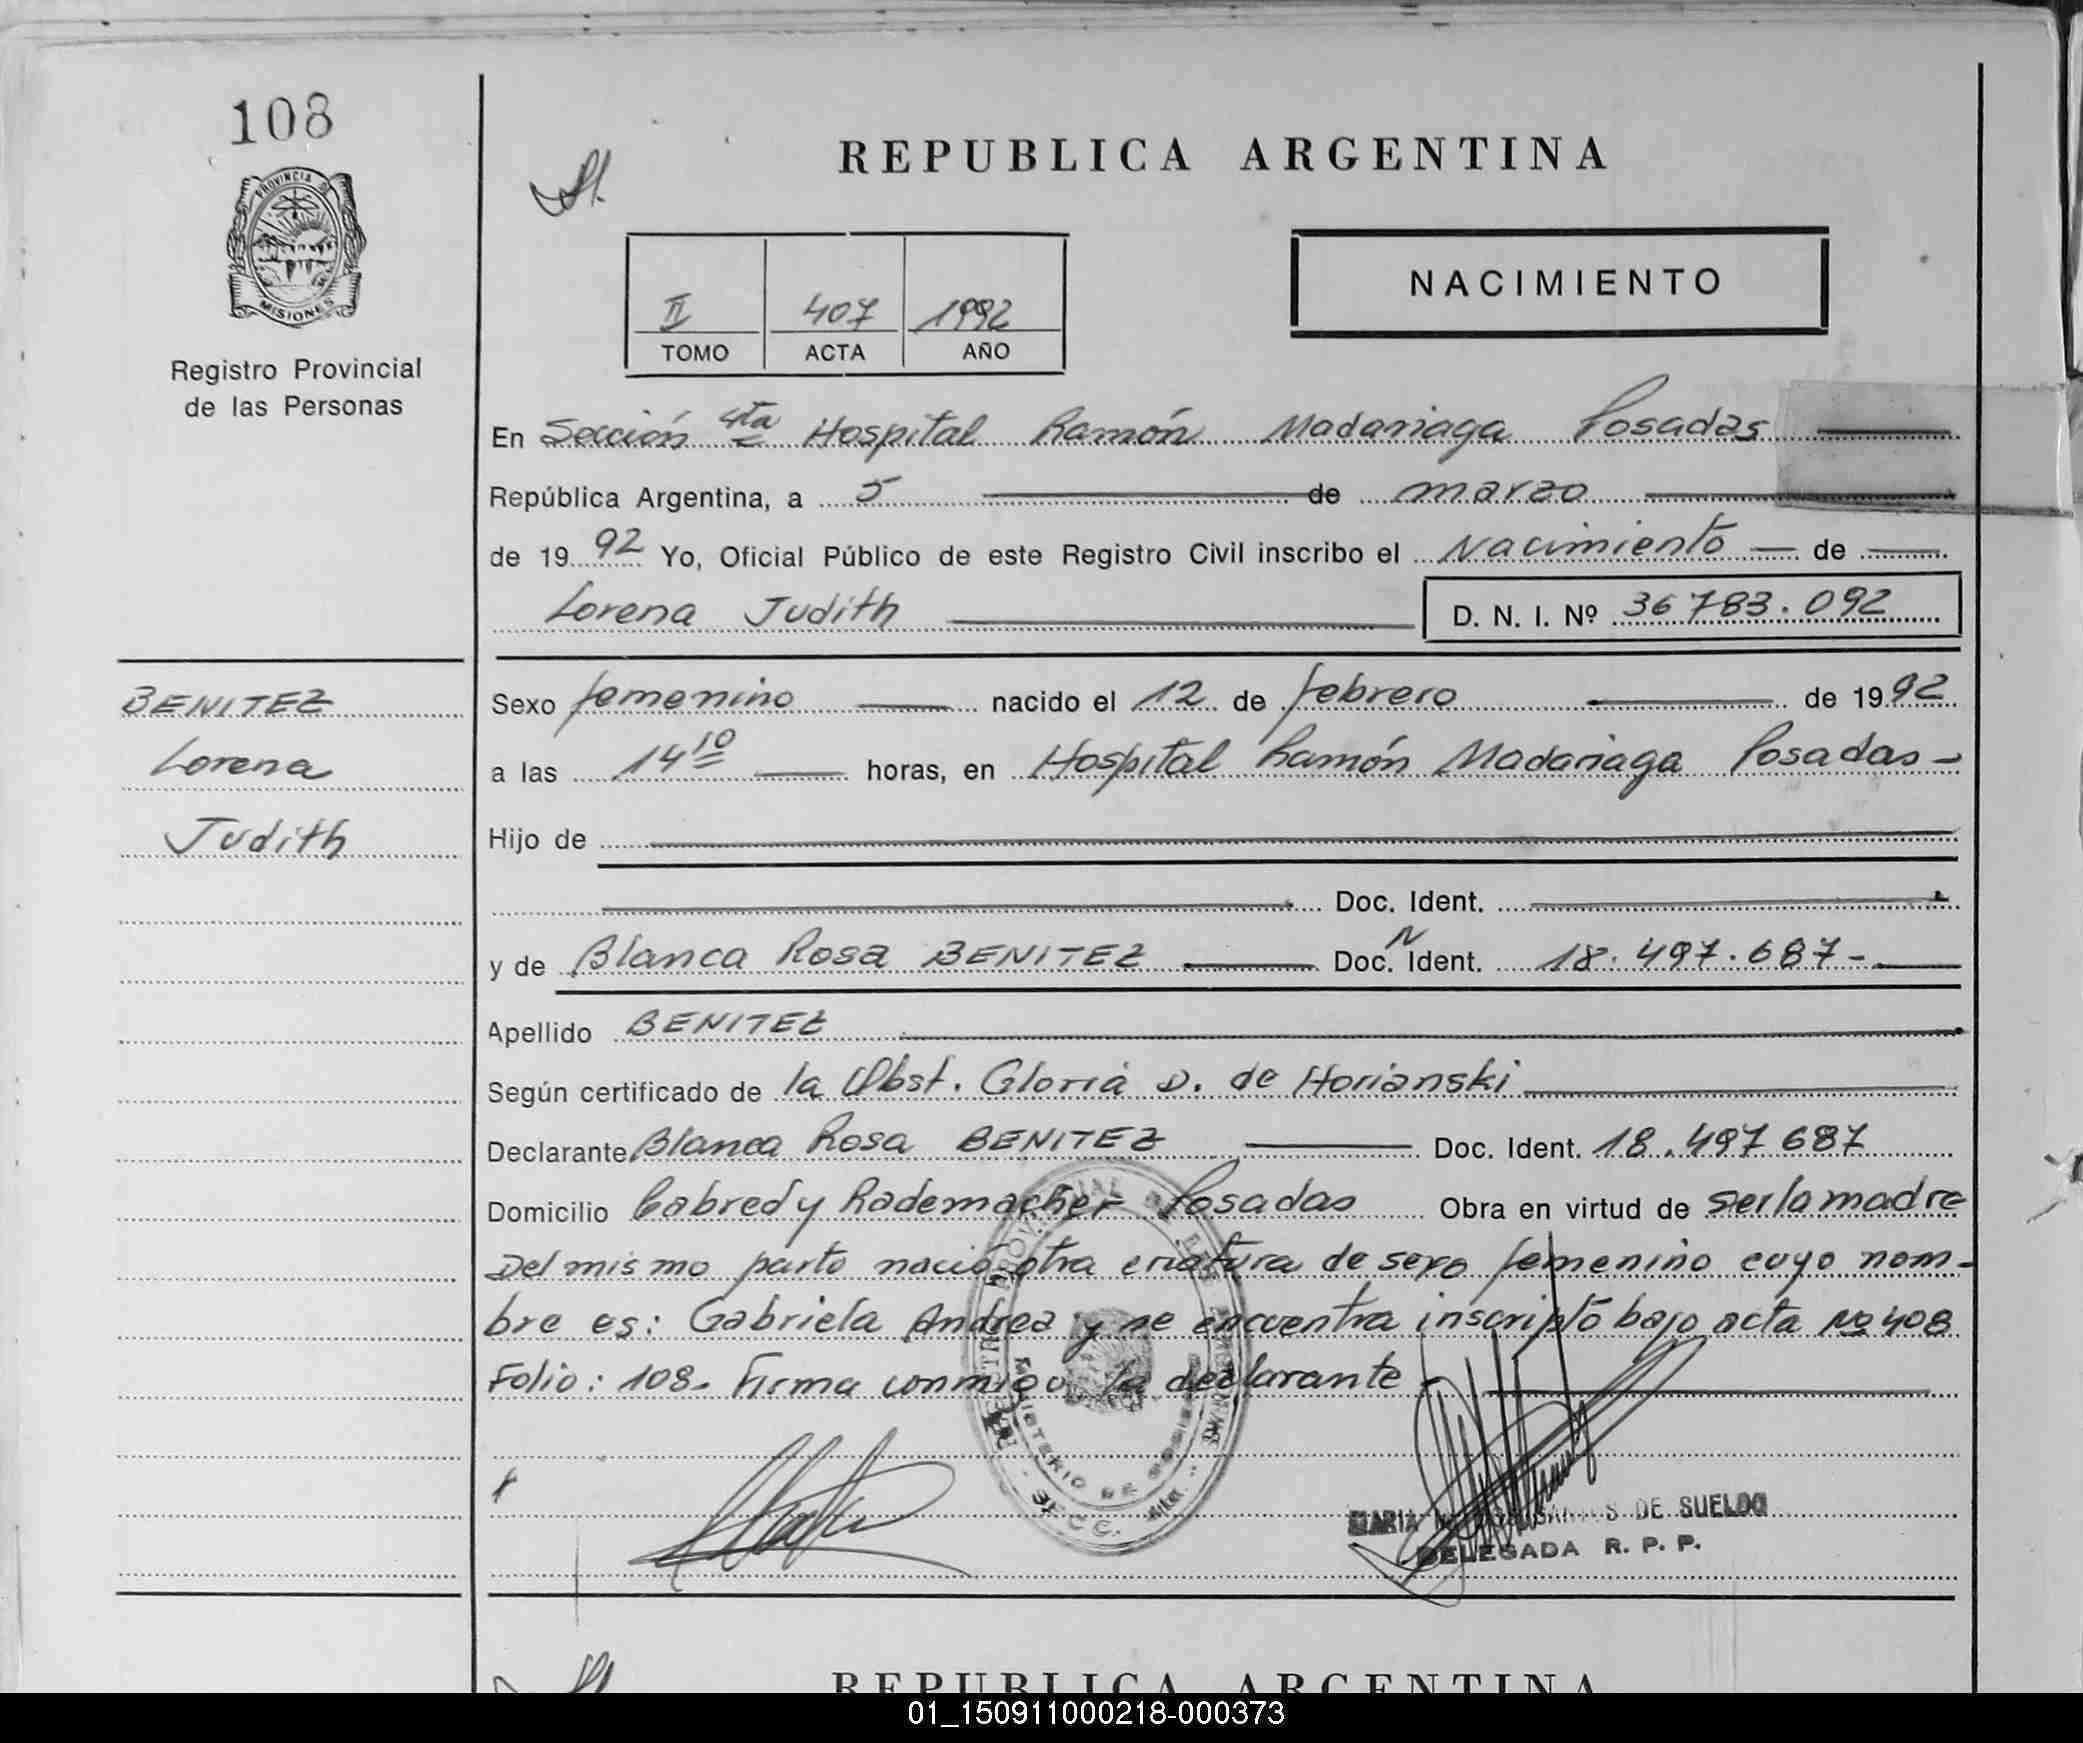 108
PROVINCIA DE
MISIONES
Registro Provincial
de las Personas
REPUBLICA ARGENTINA
NACIMIENTO
II 407 1992
TOMO ACTA AÑO
En Sección 4ta Hospital Ramón Madariaga Posadas
República Argentina, a 5 de marzo
de 1992 Yo, Oficial Público de este Registro Civil inscribo el Nacimiento de
Lorena Judith D. N. I. Nº 36783.092
BENITEZ
Lorena
Judith
Sexo femenino nacido el 12 de febrero de 1992
a las 14 10 horas, en Hospital Ramón Madariaga Posadas-
Hijo de
Doc. Ident.
y de Blanca Rosa BENITEZ Doc. N Ident. 18.497.687-
Apellido BENITEZ
Según certificado de la Obst. Gloria D. de Horianski
Declarante Blanca Rosa BENITEZ Doc. Ident. 18.497687
Domicilio Cabred y Rademacher Posadas Obra en virtud de ser la madre
Del mismo parto nació otra criatura de sexo femenino cuyo nom-
bre es: Gabriela Andrea y se encuentra inscripto bajo acta No 408
Folio: 108. Firma conmigo la declarante
MARIA SANTOS DE SUELDO
DELEGADA R. P. P.
REPUBLICA ARGENTINA
01_150911000218-000373